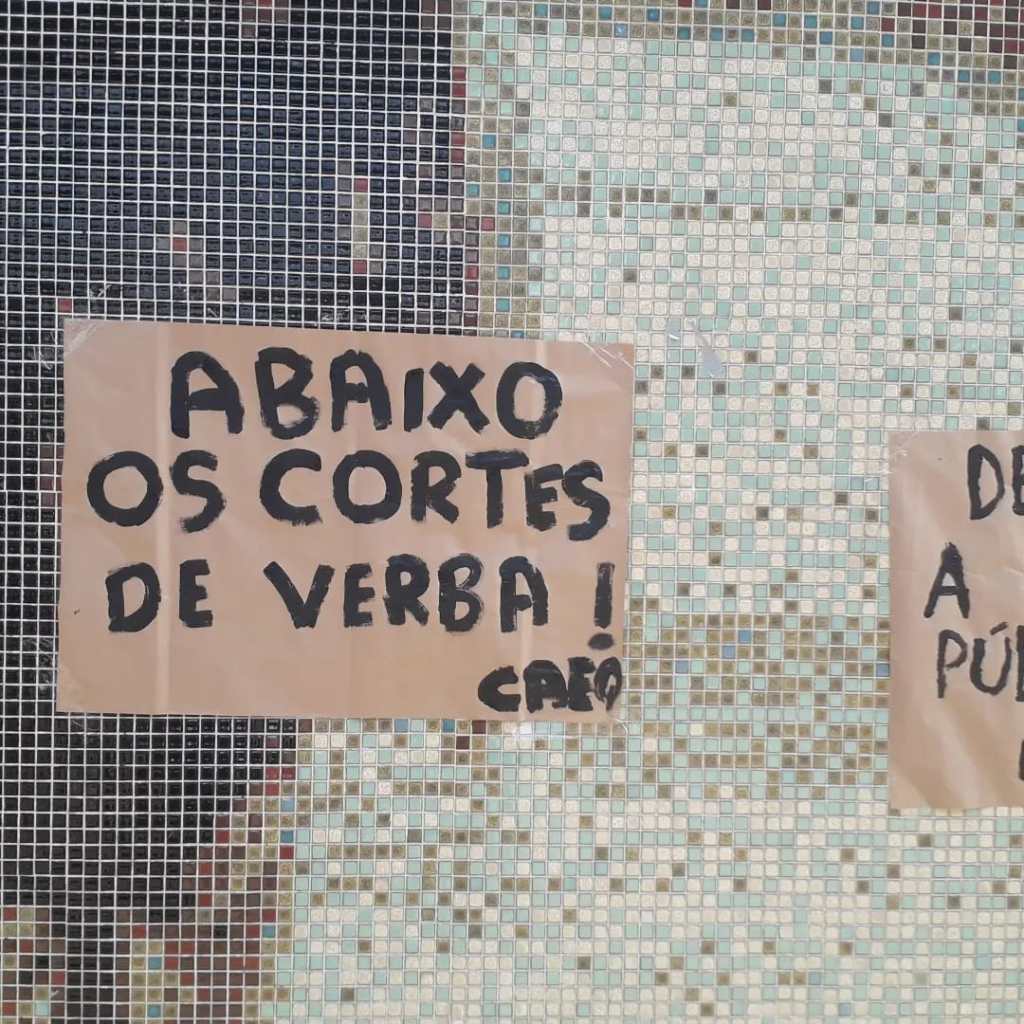 ABAIXO
OS CORTES
DE VERBA !
CAEQ
A